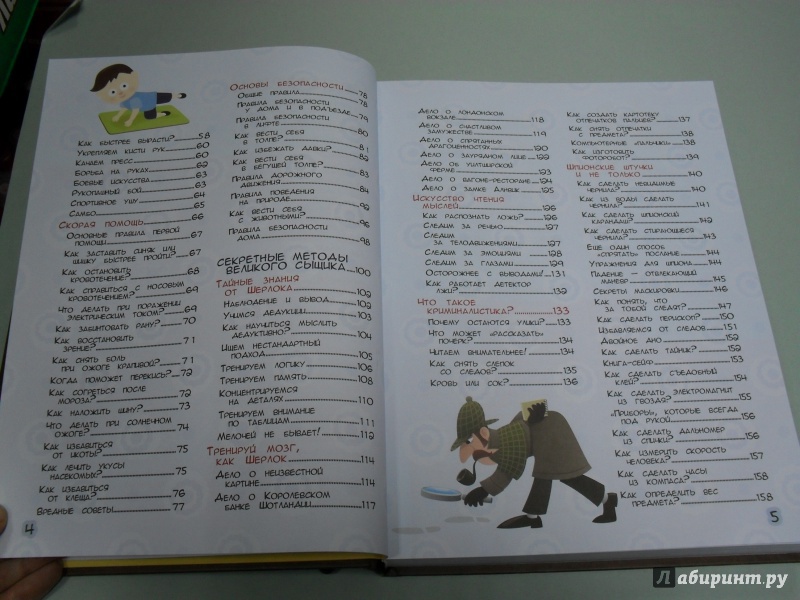 Как быстрее вырасти?......58
Укрепляем кисти рук......60
Качаем пресс......60
Борьба на руках......60
Боевые искусства......63
Рукопашный бой......63
Спортивное ушу......64
Самбо......65
Скорая помощь......66
Основные правила первой
помощи......67
Как заставить синяк или
шишку быстрее пройти?......67
Как остановить
кровотечение?......68
Как справиться с носовым
кровотечением?......69
Что делать при поражении
электрическим током?......69
Как забинтовать рану?......70
Как восстановить
зрение?......71
Как снять боль
при ожоге крапивой?......71
Когда поможет перекись?......72
Как согреться после
мороза?......72
Как наложить шину?......73
Что делать при солнечном
ожоге?......74
Как избавиться
от икоты?......75
Как лечить укусы
насекомых?......75
Как избавиться
от клеща?......76
Вредные советы......77
4
Основы безопасности......78
Общие правила......78
Правила безопасности
у дома и в подъезде......78
Правила безопасности
в лифте......79
Как вести себя
в толпе?......80
Как избежать давки?......81
Как вести себя
в бегущей толпе?......82
Правила дорожного
движения......84
Правила поведения
на природе......94
Как вести себя
с животными?......96
Правила безопасности
дома......98
Секретные методы
великого сыщика......100
Тайные знания
от Шерлока......102
Наблюдение и вывод......102
Учимся дедукции......103
Как научиться мыслить
дедуктивно?......104
Ищем нестандартный
подход......105
Тренируем логику......106
Тренируем память......108
Концентрируемся
на деталях......110
Тренируем внимание
по таблицам......111
Мелочей не бывает!......112
Тренируй мозг,
как Шерлок......114
Дело о неизвестной
картине......114
Дело о Королевском
банке Шотландии......117
Дело о лондонском
вокзале......118
Дело о счастливом
замужестве......119
Дело о спрятанных
драгоценностях......120
Дело о заурядном лице......122
Дело об уилтширской
ферме......123
Дело о вагоне-ресторане......124
Дело о замке Алнвик......125
Искусство чтения
мыслей......126
Как распознать ложь?......126
Следим за речью......127
Следим
за телодвижениями......127
Следим за эмоциями......128
Следим за глазами......129
Осторожнее с выводами!......131
Как работает детектор
лжи?......132
Что такое
криминалистика?......133
Почему остаются улики?......133
Что может «рассказать»
почерк?......134
Читаем внимательнее!......134
Как снять слепок
со следов?......135
Кровь или сок?......136
Как создать картотеку
отпечатков пальцев?......137
Как снять отпечатки
с предмета?......138
Компьютерные «пальчики»......138
Как изготовить
фоторобот?......139
Шпионские штучки
и не только......140
Как сделать невидимые
чернила?......140
Как из воды сделать
чернила?......141
Как сделать шпионский
карандаш?......142
Как сделать стирающиеся
чернила?......143
Еще один способ
«спрятать» послание......144
Упражнения для шпиона......144
Падение — отвлекающий
маневр......145
Секреты маскировки......146
Как понять, что
за тобой следят?......147
Как сделать перископ?......150
Избавляемся от следов......151
Двойное дно......152
Как сделать тайник?......152
Книга-сейф......153
Как сделать съедобный
клей?......154
Как сделать электромагнит
из гвоздя?......155
«Приборы», которые всегда
под рукой......156
Как сделать дальномер
из спички?......156
Как измерить скорость
человека?......157
Как сделать часы
из компаса?......158
Как определить вес
предмета?......158
5
Лабиринт.ру